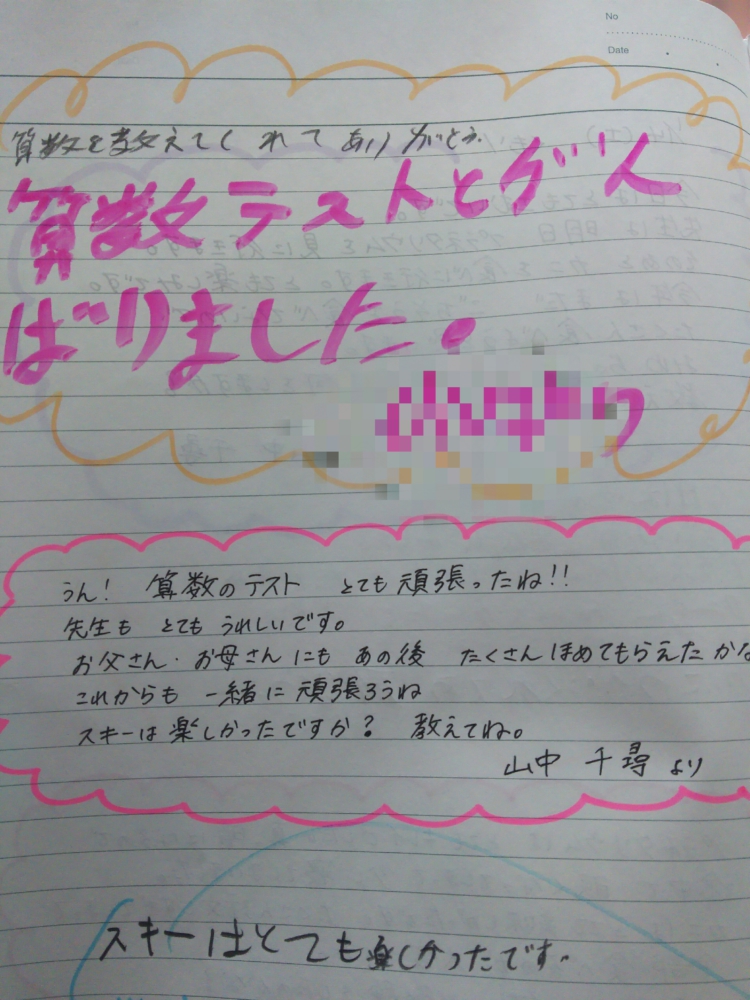 No
Date
算数を教えてくれてありがとう。
算数テストとがん
ばりました。
より
うん! 算数のテスト とても頑張ったね!!
先生も とても うれしいです。
お父さん・お母さんにも あの後 たくさんほめてもらえたかな
これからも 一緒に 頑張ろうね
スキーは楽しかったですか? 教えてね。
山中 千尋 より
スキーはとても楽しかったです。